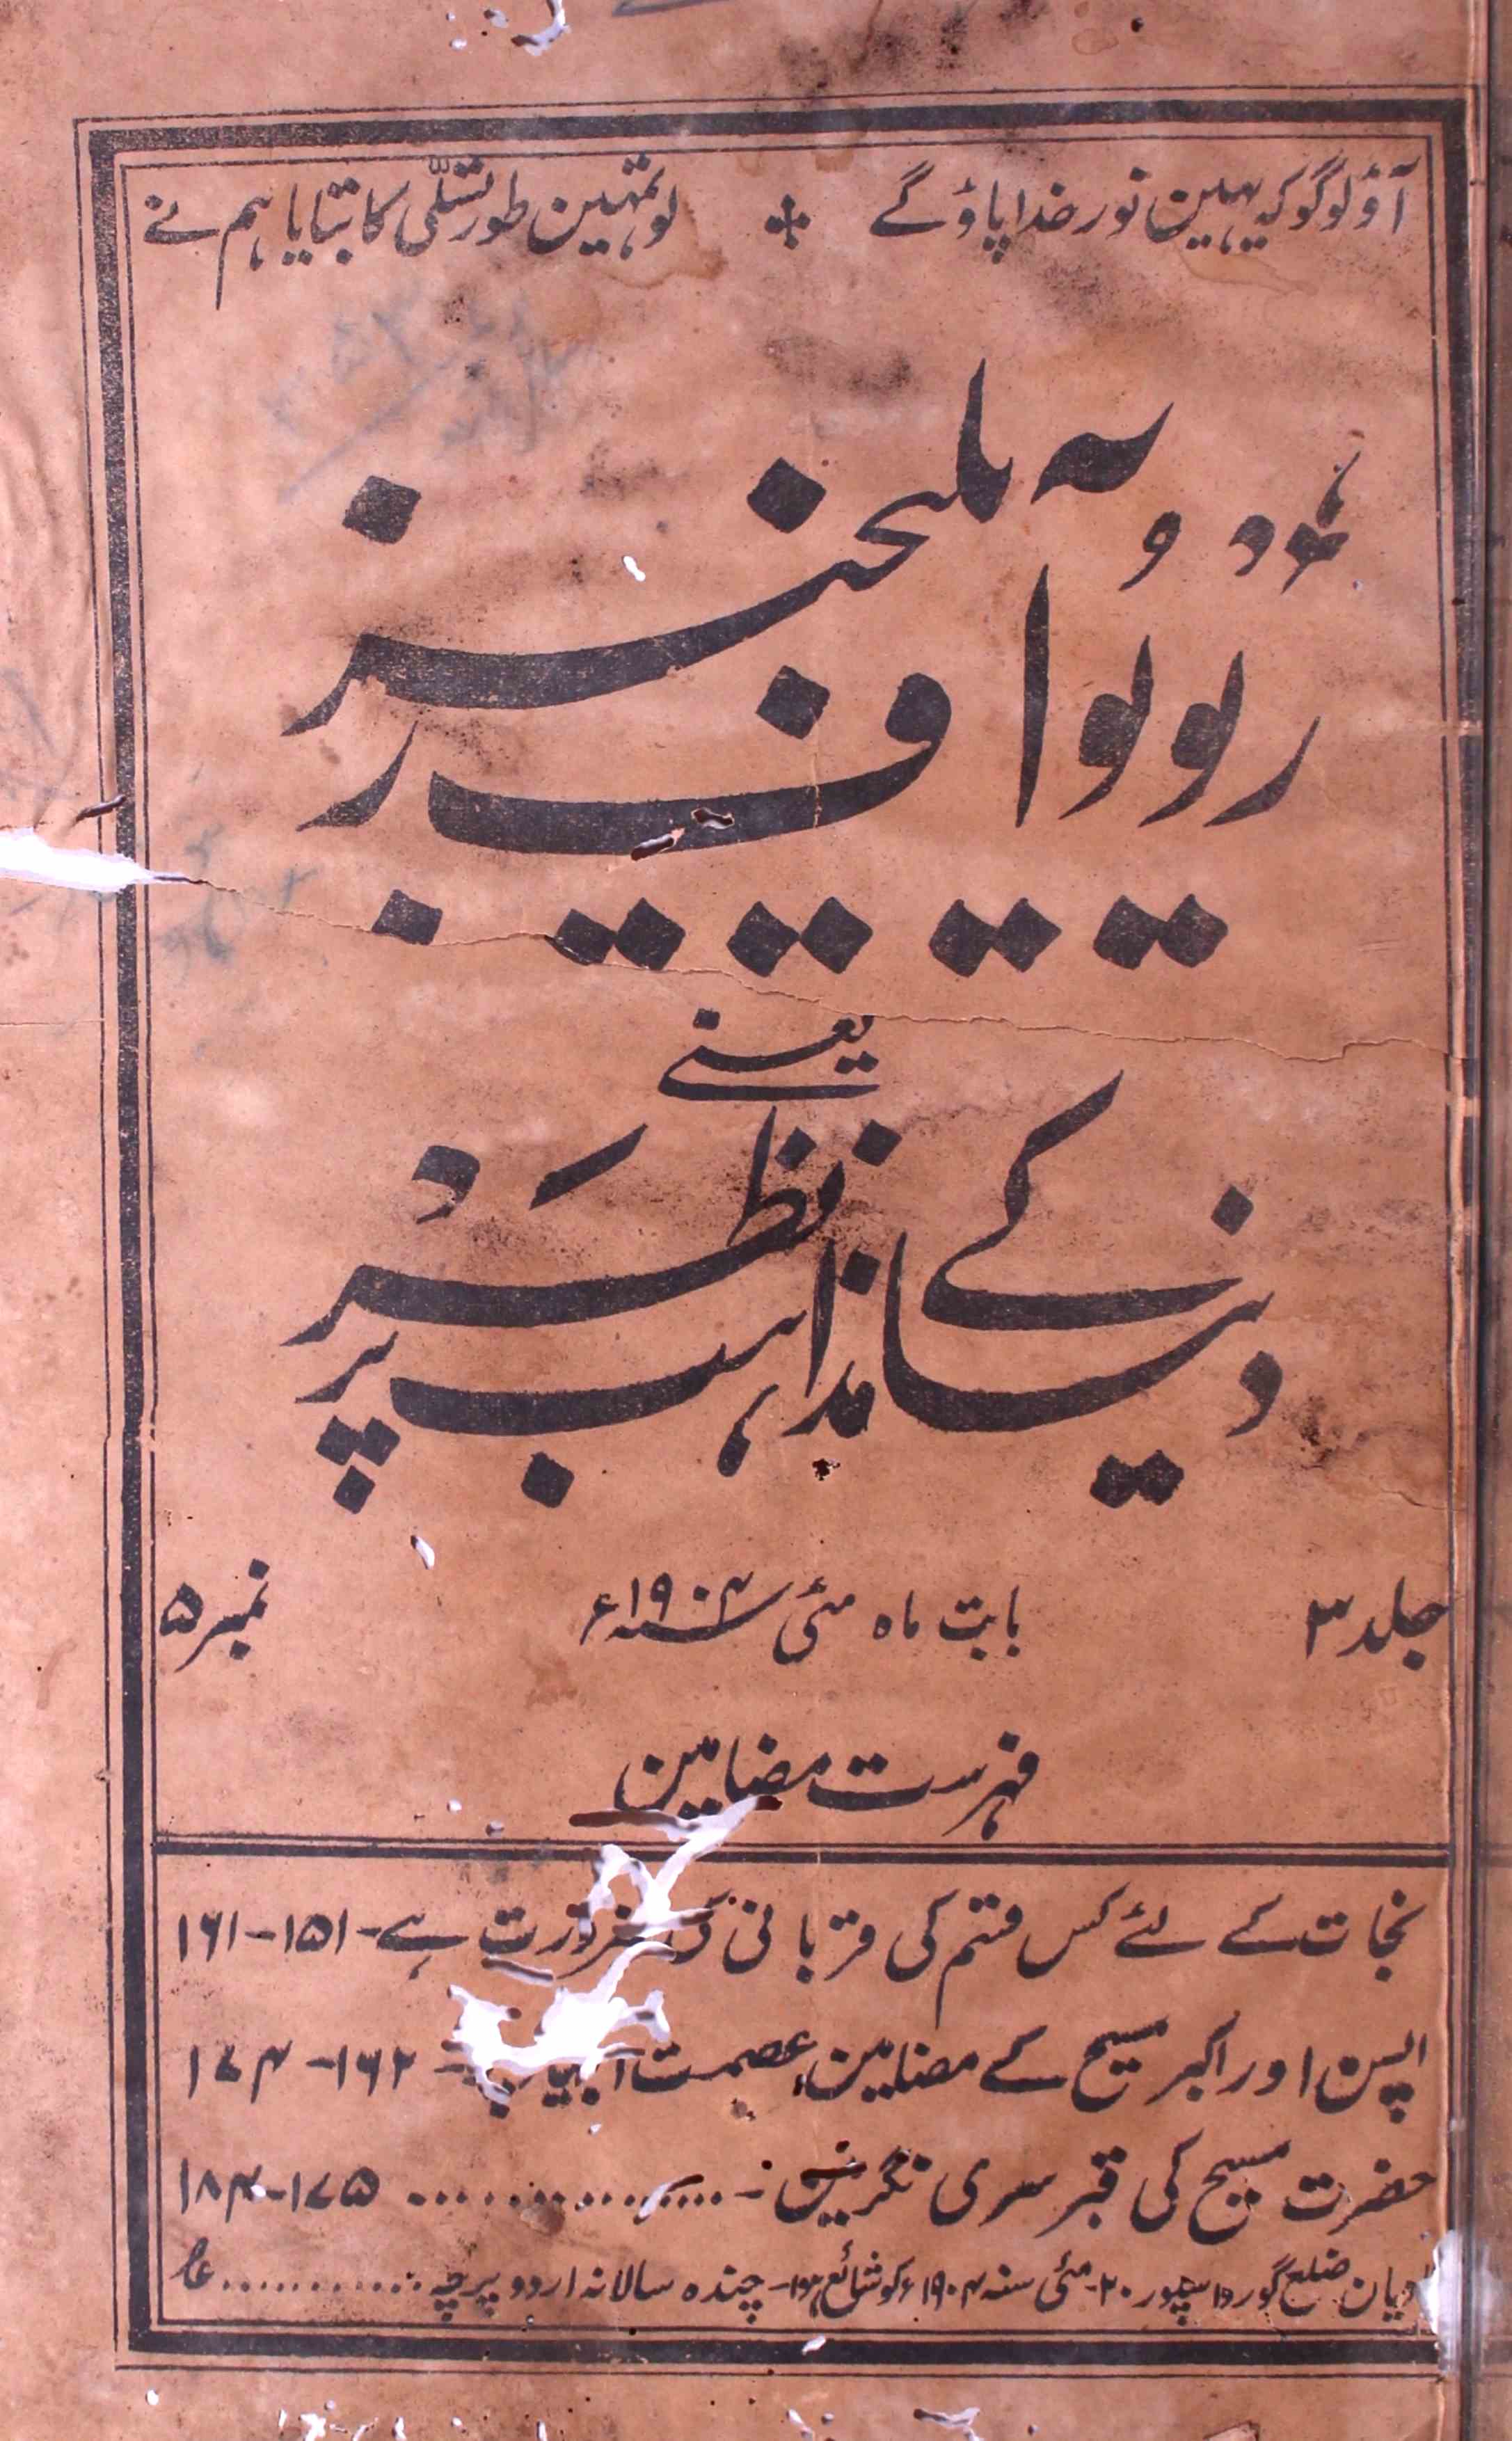 آؤ لوگو کہ یہین نور خدا پاؤ گے * لو تمہین طور تسلّی کا بتایا ہم نے
ریویو آف ریلیجنز
یعنے
دنیا کے مذاہب پر نظر
جلد ۳ بابت ماہ مئی سنہ ۱۹۰۴ء نمبر ۵
فہرست مضامین
نجات کے لئے کس قسم کی قربانی کی ضرورت ہے - ۱۵۱-۱۶۱
اور اکبر مسیح کے مضامین عصمت انبیا - ۱۶۲-۱۷۴
حضرت مسیح کی قبر سری نگر مین - ............... ۱۷۵-۱۸۴
قادیان ضلع گورداسپور ۲۰- مئی سنہ ۱۹۰۴ء کو شائع ہوا - چندہ سالانہ اردو پرچہ ............